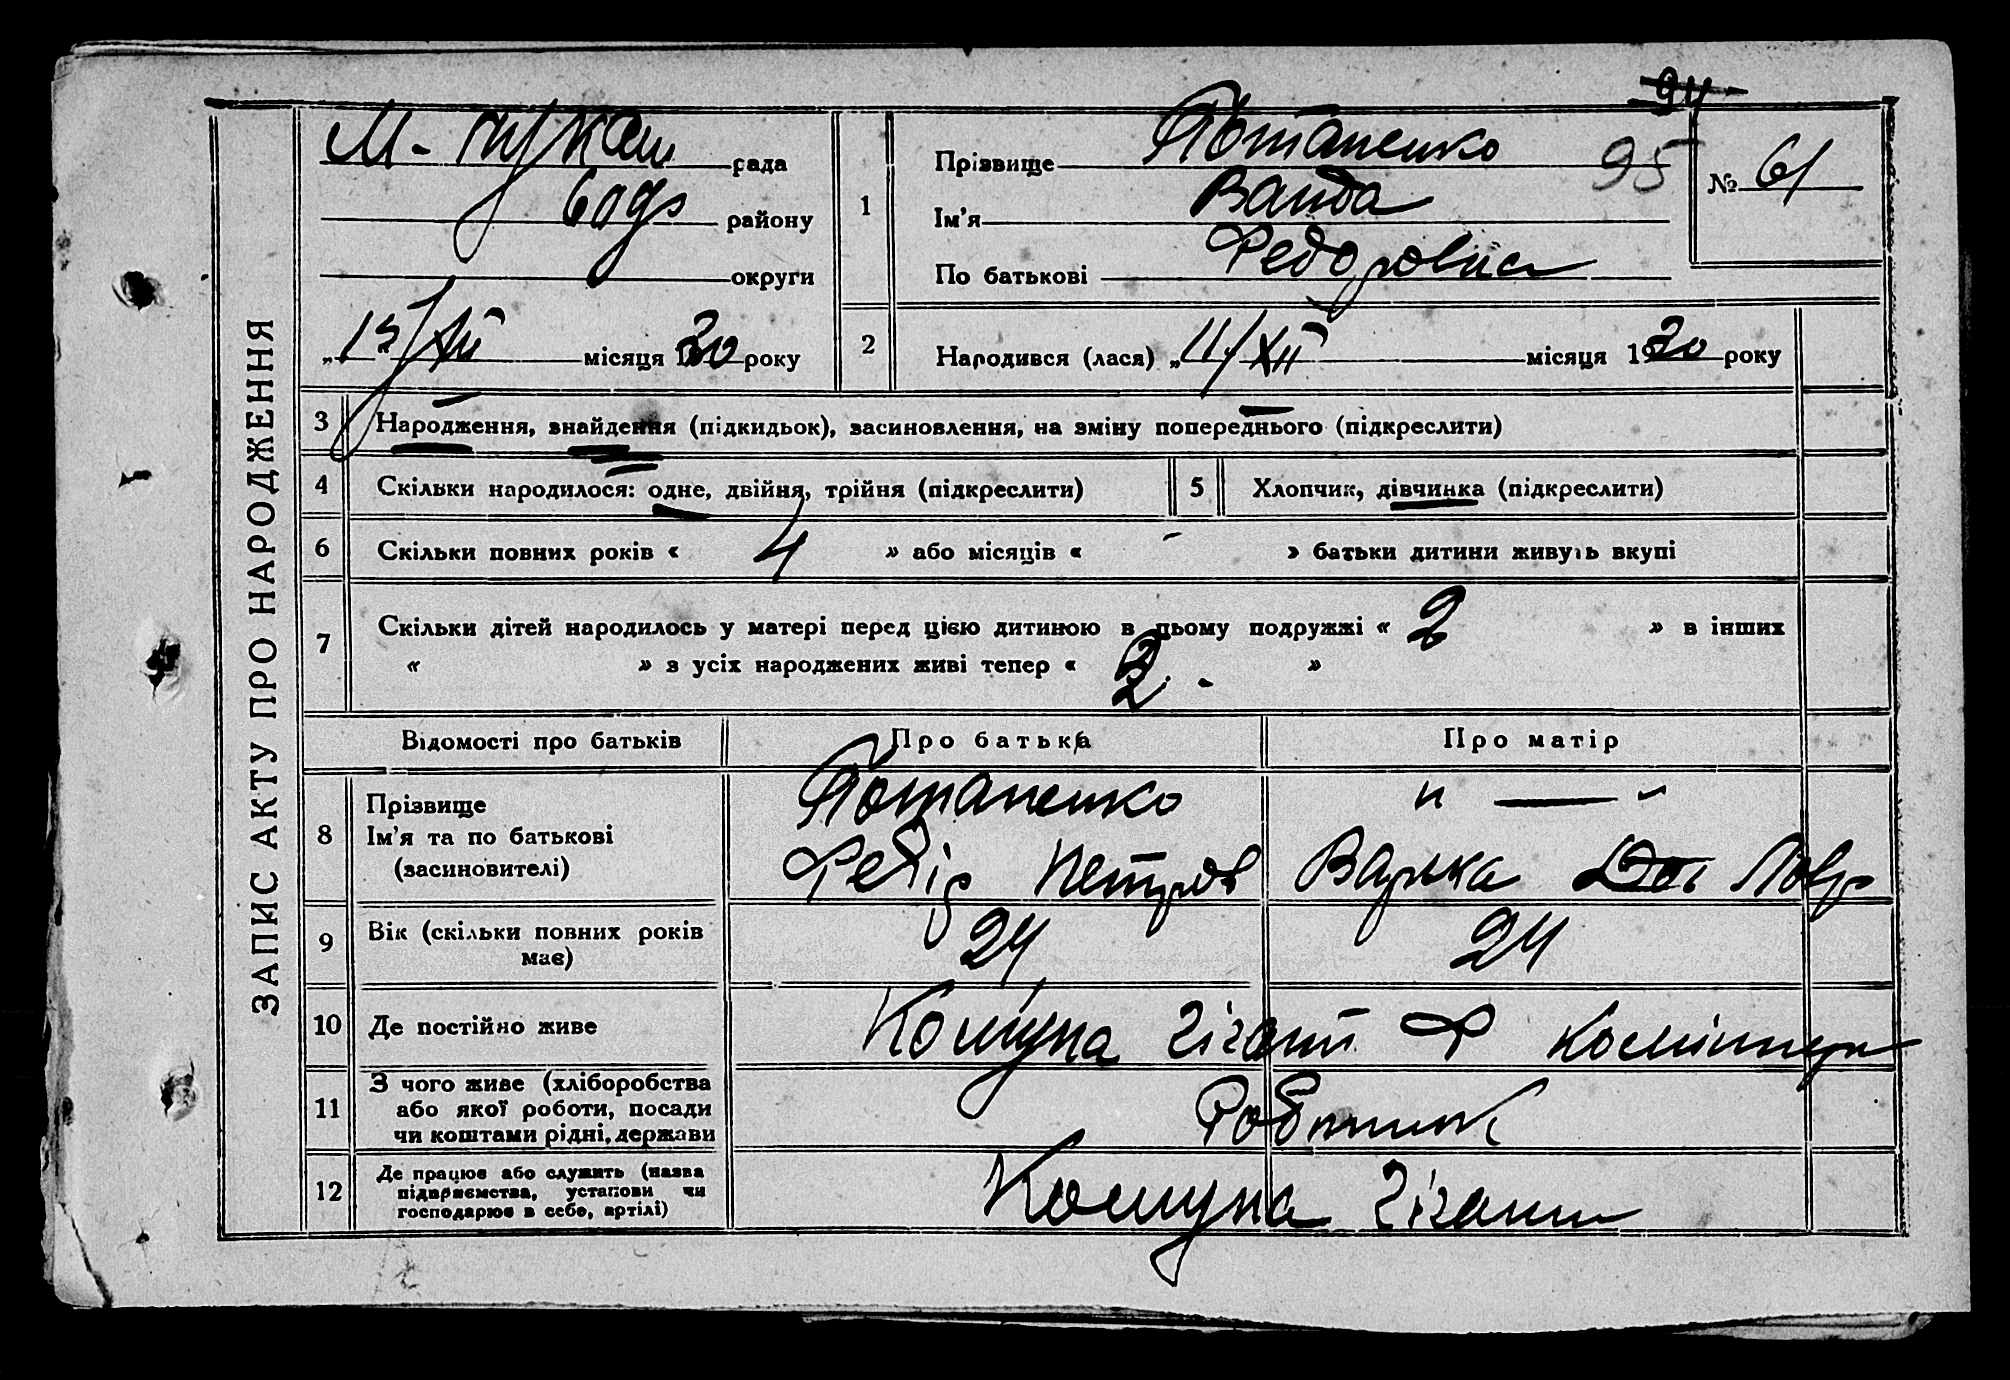 94
ЗАПИС АКТУ ПРО НАРОДЖЕННЯ
М- сада
району
округи
„15/XII місяця 30 року
1
Прізвище Потапенко 95
Ім'я Ванда
По батькові Федоровна
№ 61
2
Народився (лася) „11/XII місяця 1930 року
3 Народження, знайдення (підкидьок), засиновлення, на зміну попереднього (підкреслити)
4 Скільки народилося: одне, двійня, трійня (підкреслити)
5 Хлопчик, дівчинка (підкреслити)
6 Скільки повних років « 4 » або місяців « - » батьки дитини живуть вкупі
7 Скільки дітей народилось у матері перед цією дитиною в цьому подружжі « 2 » в інших
« » з усіх народжених живі тепер « 2 . - »
Відомості про батьків Про батька Про матір
8 Прізвище Потапенко " — "
Ім'я та по батькові Федір Петров Варька Лавр
(засиновителі)
9 Вік (скільки повних років має) 24 24
10 Де постійно живе Комуна Гігант Комінтерн
11 З чого живе (хліборобства
або якої роботи, посади
чи коштами рідні, держави Робітник
12 Де працює або служить (назва
підприємства, установи чи
господарює в себе, артілі) Комуна Гігант